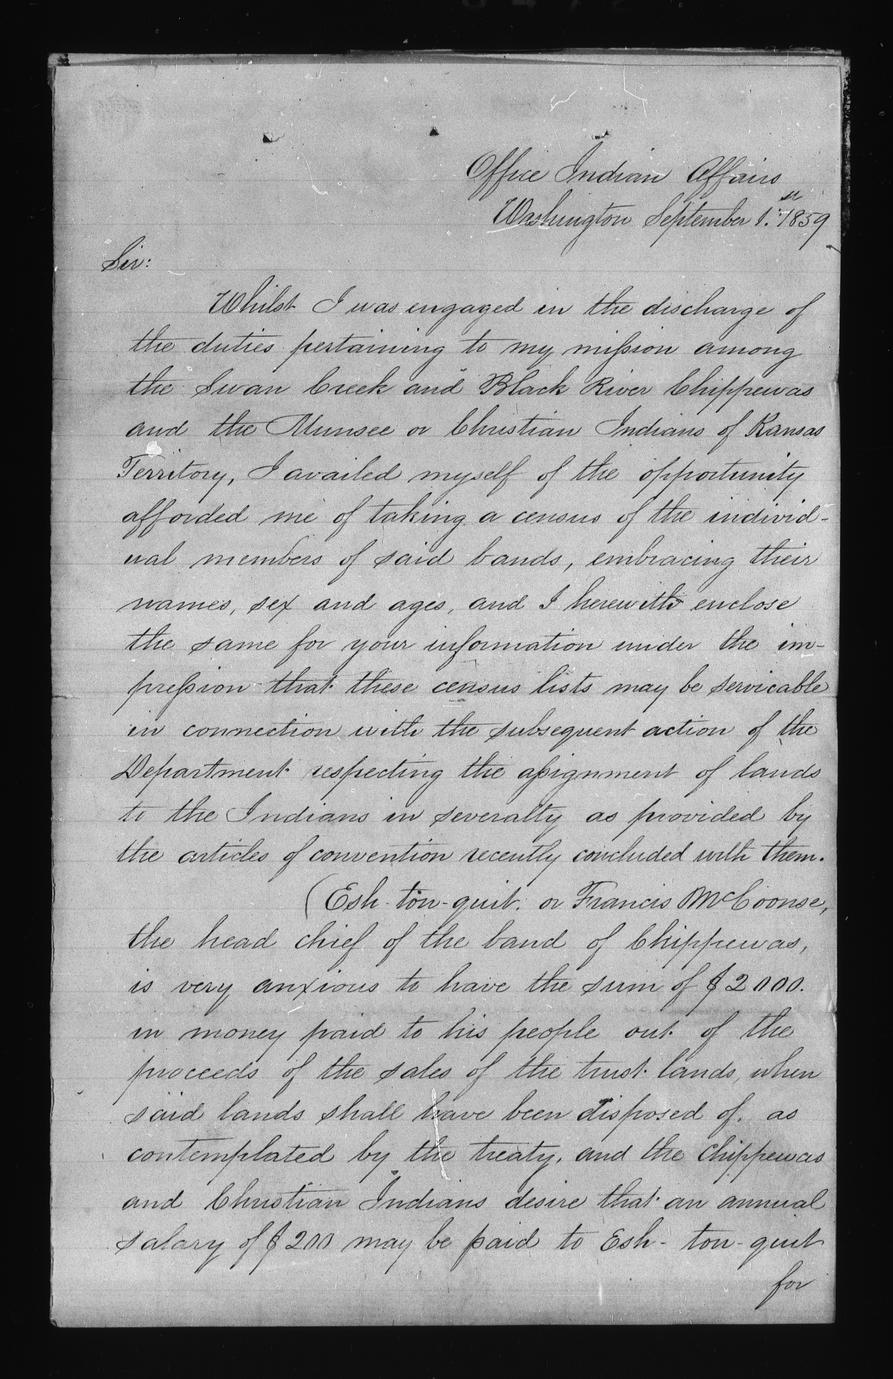 Office Indian Affairs
Washington September 1st 1859
Sir:
Whilst I was engaged in the discharge of
the duties pertaining to my mission among
the Swan Creek and Black River Chippewas
and the Munsee or Christian Indians of Kansas
Territory, I availed myself of the opportunity
afforded me of taking a census of the individ-
ual members of said bands, embracing their
names, sex and ages, and I herewith enclose
the same for your information under the im-
pression that these census lists may be servicable
in connection with the subsequent action of the
Department respecting the assignment of lands
to the Indians in severalty as provided by
the articles of convention recently concluded with them.
(Esh-ton-quit. or Francis McCoonse,
the head chief of the band of Chippewas,
is very anxious to have the sum of $2000.
in money paid to his people out of the
proceeds of the sales of the trust lands, when
said lands shall have been disposed of, as
contemplated by the treaty, and the Chippewas
and Christian Indians desire that an annual
salary of $200 may be paid to Esh-ton-quit
for